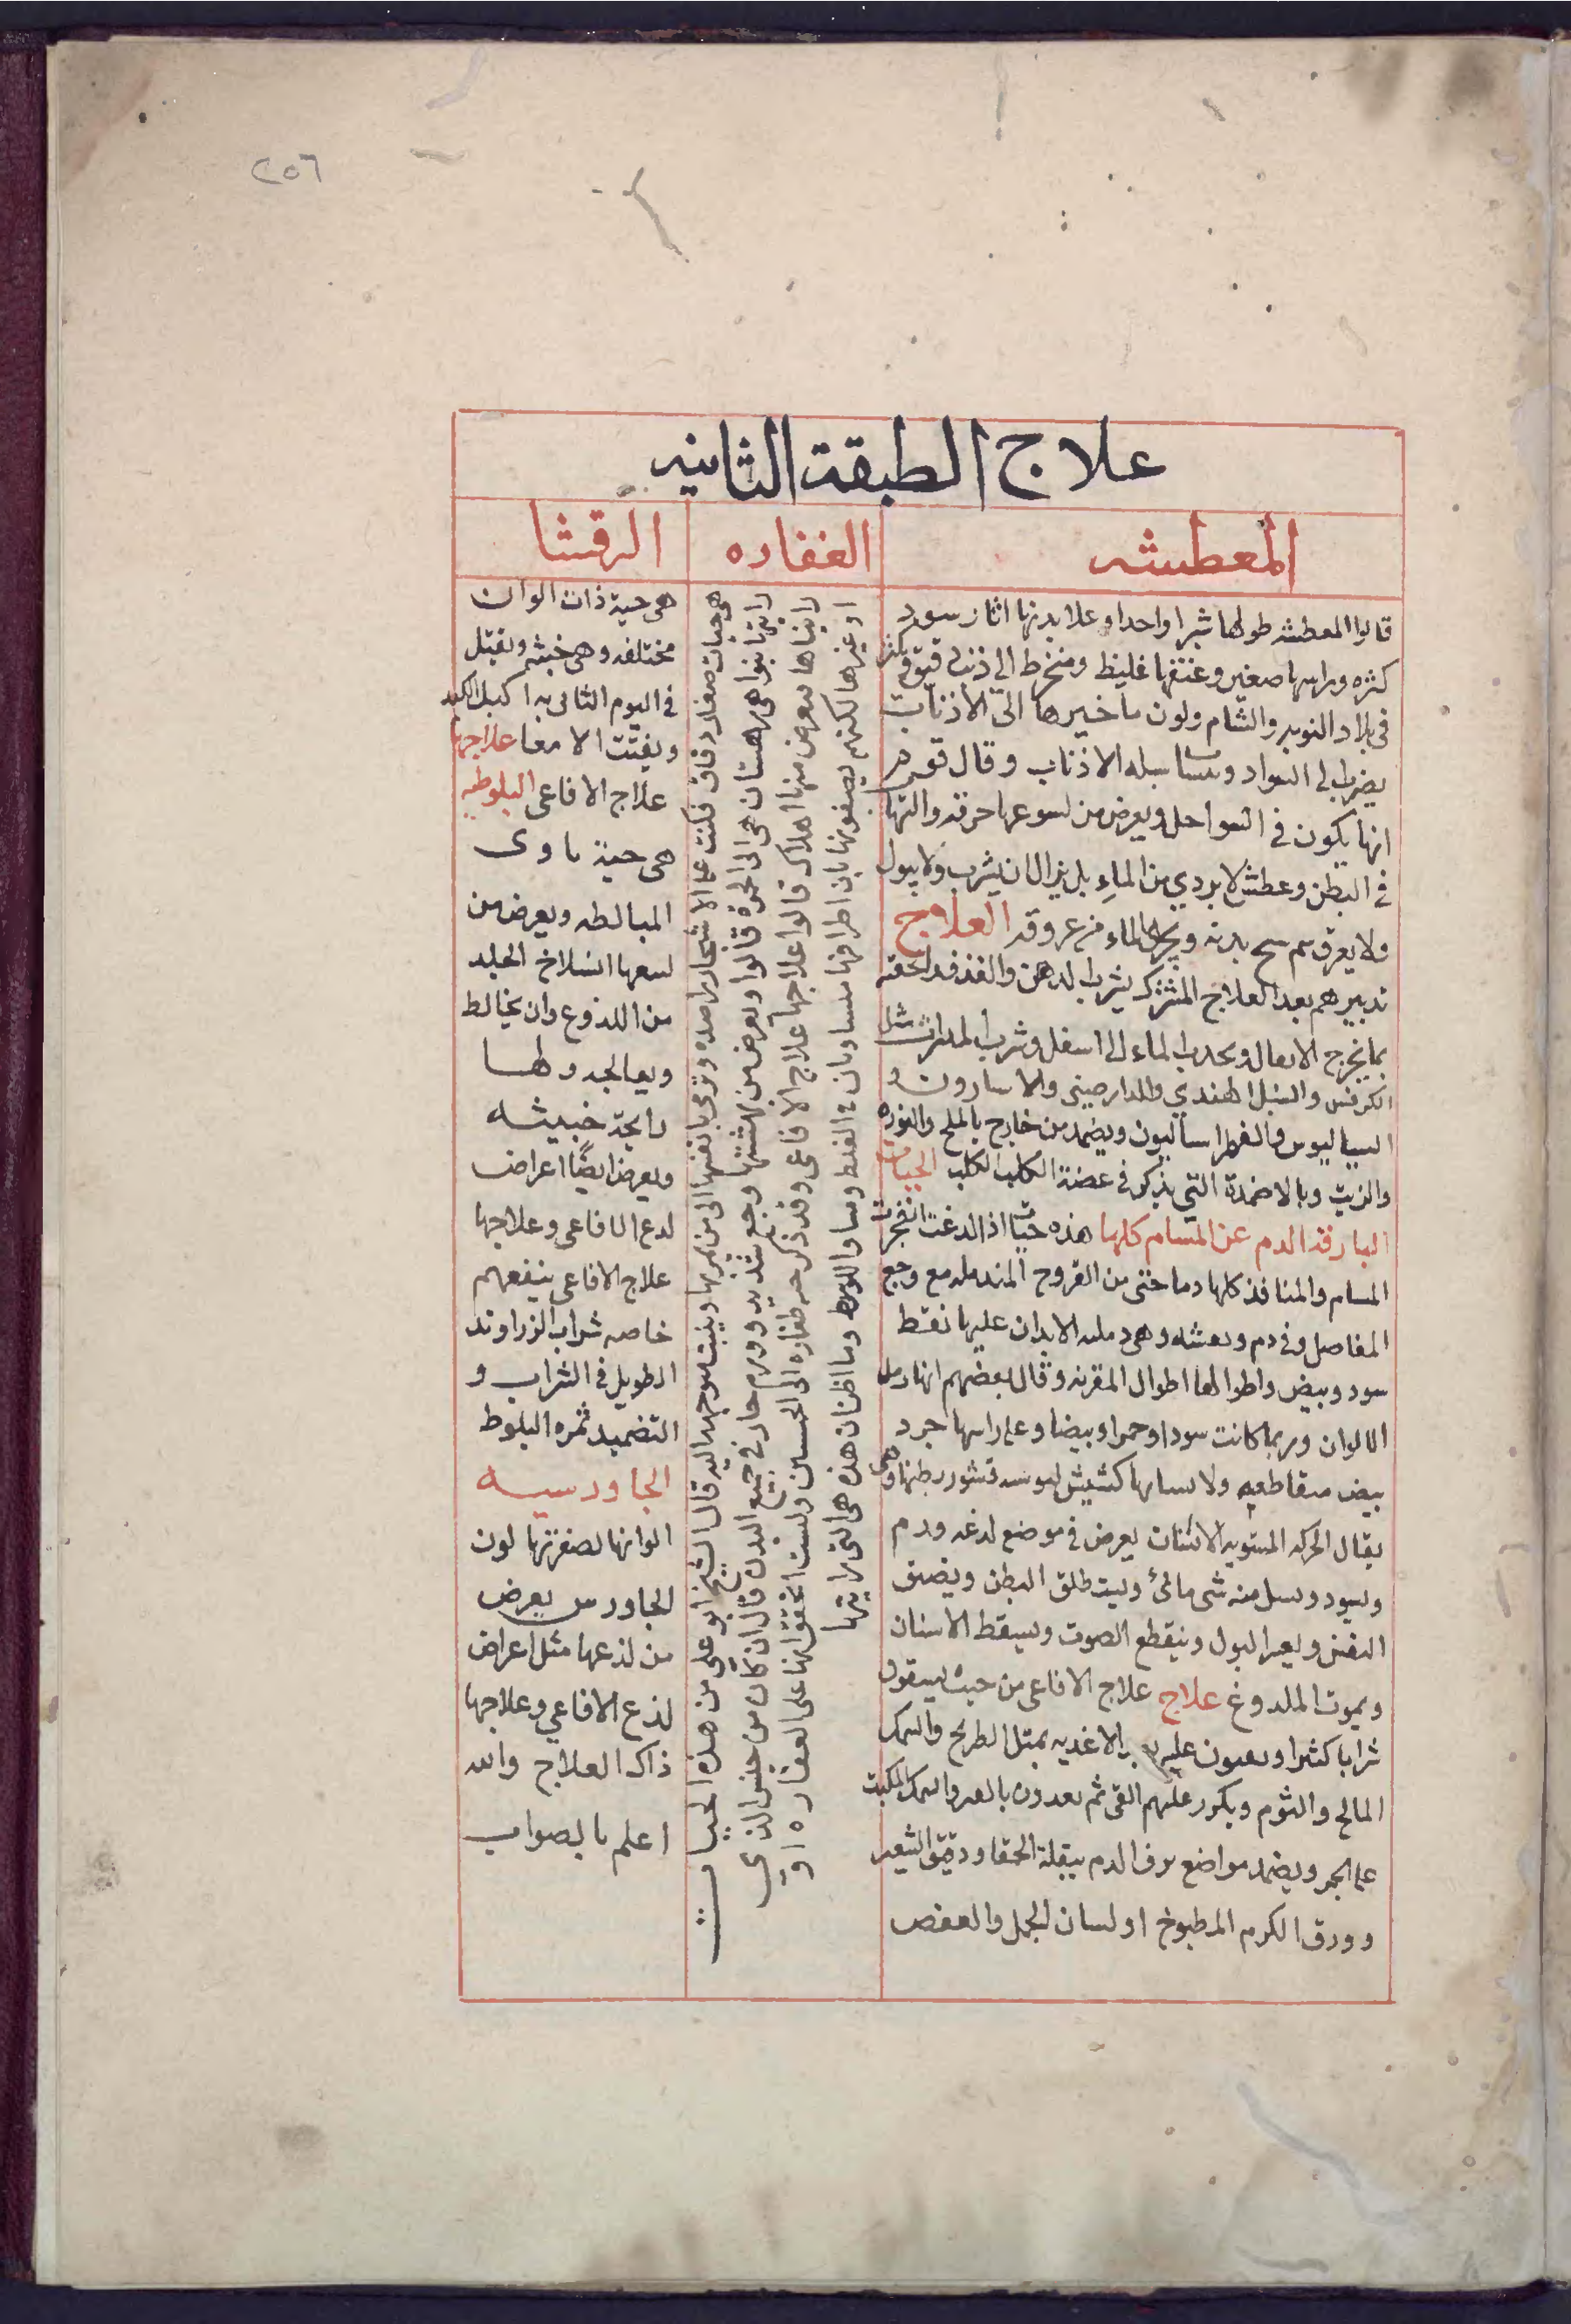 ٢٥٦
علاج الطبقة الثانيه
المعطشه
قالوا المعطشه طولها شبرا واحدا وعلا بدنها اثار سود
كثره وراسها صغير وعنقها غليظ ومنخرط الى ذنب دقيق يكثر
فى بلاد النوبه والشام ولون ماخيرها الى الاذناب
يضرب الى السواد وسا سله الاذناب وقال قوم
انها يكون فى السواحل ويعرض من لسوعها حرقه والتها
فى البطن وعطش لا يردي من الماء بل يزال ان يشرب ولا يبول
ولا يعرق سح بدنه الماء من عروقه العلاج
تدبيرهم بعد العلاج المشترك يشرب الدهن والقذف والحقنه
بما يخرج الى اسفل وشرب المدرات مثل
الكرفس والسنبل الهندي والدارصينى والاسارون و
السياليوس والفطراساليون ويضمد من خارج بالملح والنوره
والزيت وبالاضمدة التي يذكر فى عضة الكلب الكلب الحيات
البارقة الدم عن المسام كلها هذه حيات اذا لدغت انفجرت
المسام والمنافذ كلها دما حتى من القروح المندمله مع وجع
المفاصل وقى دم ورعشه وهى الابدان عليها نقط
سود وبيض واطوالها اطوال المقرنه وقال بعضهم انها رمل
الالوان وربما كانت سودا وحمرا وبيضا وعلى راسها جرد
بيض متقاطعه كشيش قشور بطنها وهى
يقال الحركه المستويه الانسان يعرض فى موضع لدغه ورم
ويسود ويسل منه شى مائى ويستطلق البطن ويضيق
النفس ويعسر البول وينقطع الصوت ويسقط الاسنان
ويموت الملدوغ علاج علاج الافاعى من حيث يسقون
شرابا كثيرا عليه بالاغديه بمثل الطريخ والسمك
المالح والثوم ويكرر عليهم القى ثم والسمك المكبب
على الجمر ويضمد مواضع نزف الدم ببقلة الحمقا ودقيق الشعير
وورق الكرم المطبوخ او لسان الحمل والعفص
الغفاره
هى حيات صغار دقاق فكنت على الاشجار راصده وترمى بانفسها الى من يمر بها ويثبت متوجهه اليه قال الشيخ ابو علي من هذه الحيات
رايتها بنواهى دهستان هى الى الحمرة قالوا ويعرض من نهشتها وجع شديد وورم حار فى جميع البدن قال ان كان من جنس الذي
رايناها يعرض منها اهلاك قالوا علاجها علاج الافاعى وقد ذكر طفاره الى الحسين ولست اتحقق انها على الغفاره او
او غيرها لكنهم يصفونها بان اطرافها متساويان فى الغلظ وسا وما اظن ان هذه هى التى رايتها
الرقشا
هى حية ذات الوان
مختلفه وهى خبيثه ويقتل
فى اليوم الثانى الكبد
ويفتت الامعا علاجها
علاج الافاعى البلوطيه
هى حية ياوى
المبالطه ويعرض من
لسعها انسلاخ الجلد
من اللذوع وان يخالط
ويعالجه ولها
رائحة خبيثه
ويعرض ايضًا اعراض
لدع الافاعى وعلاجها
علاج الافاعى ينفعهم
خاصه شراب الزراوند
الطويل فى الشراب و
التضميد ثمره البلوط
الجاورسيه
الوانها لصفرتها لون
الجاورس يعرض
من لذعها مثل اعراض
لذع الافاعي وعلاجها
ذاك العلاج والله
اعلم بالصواب